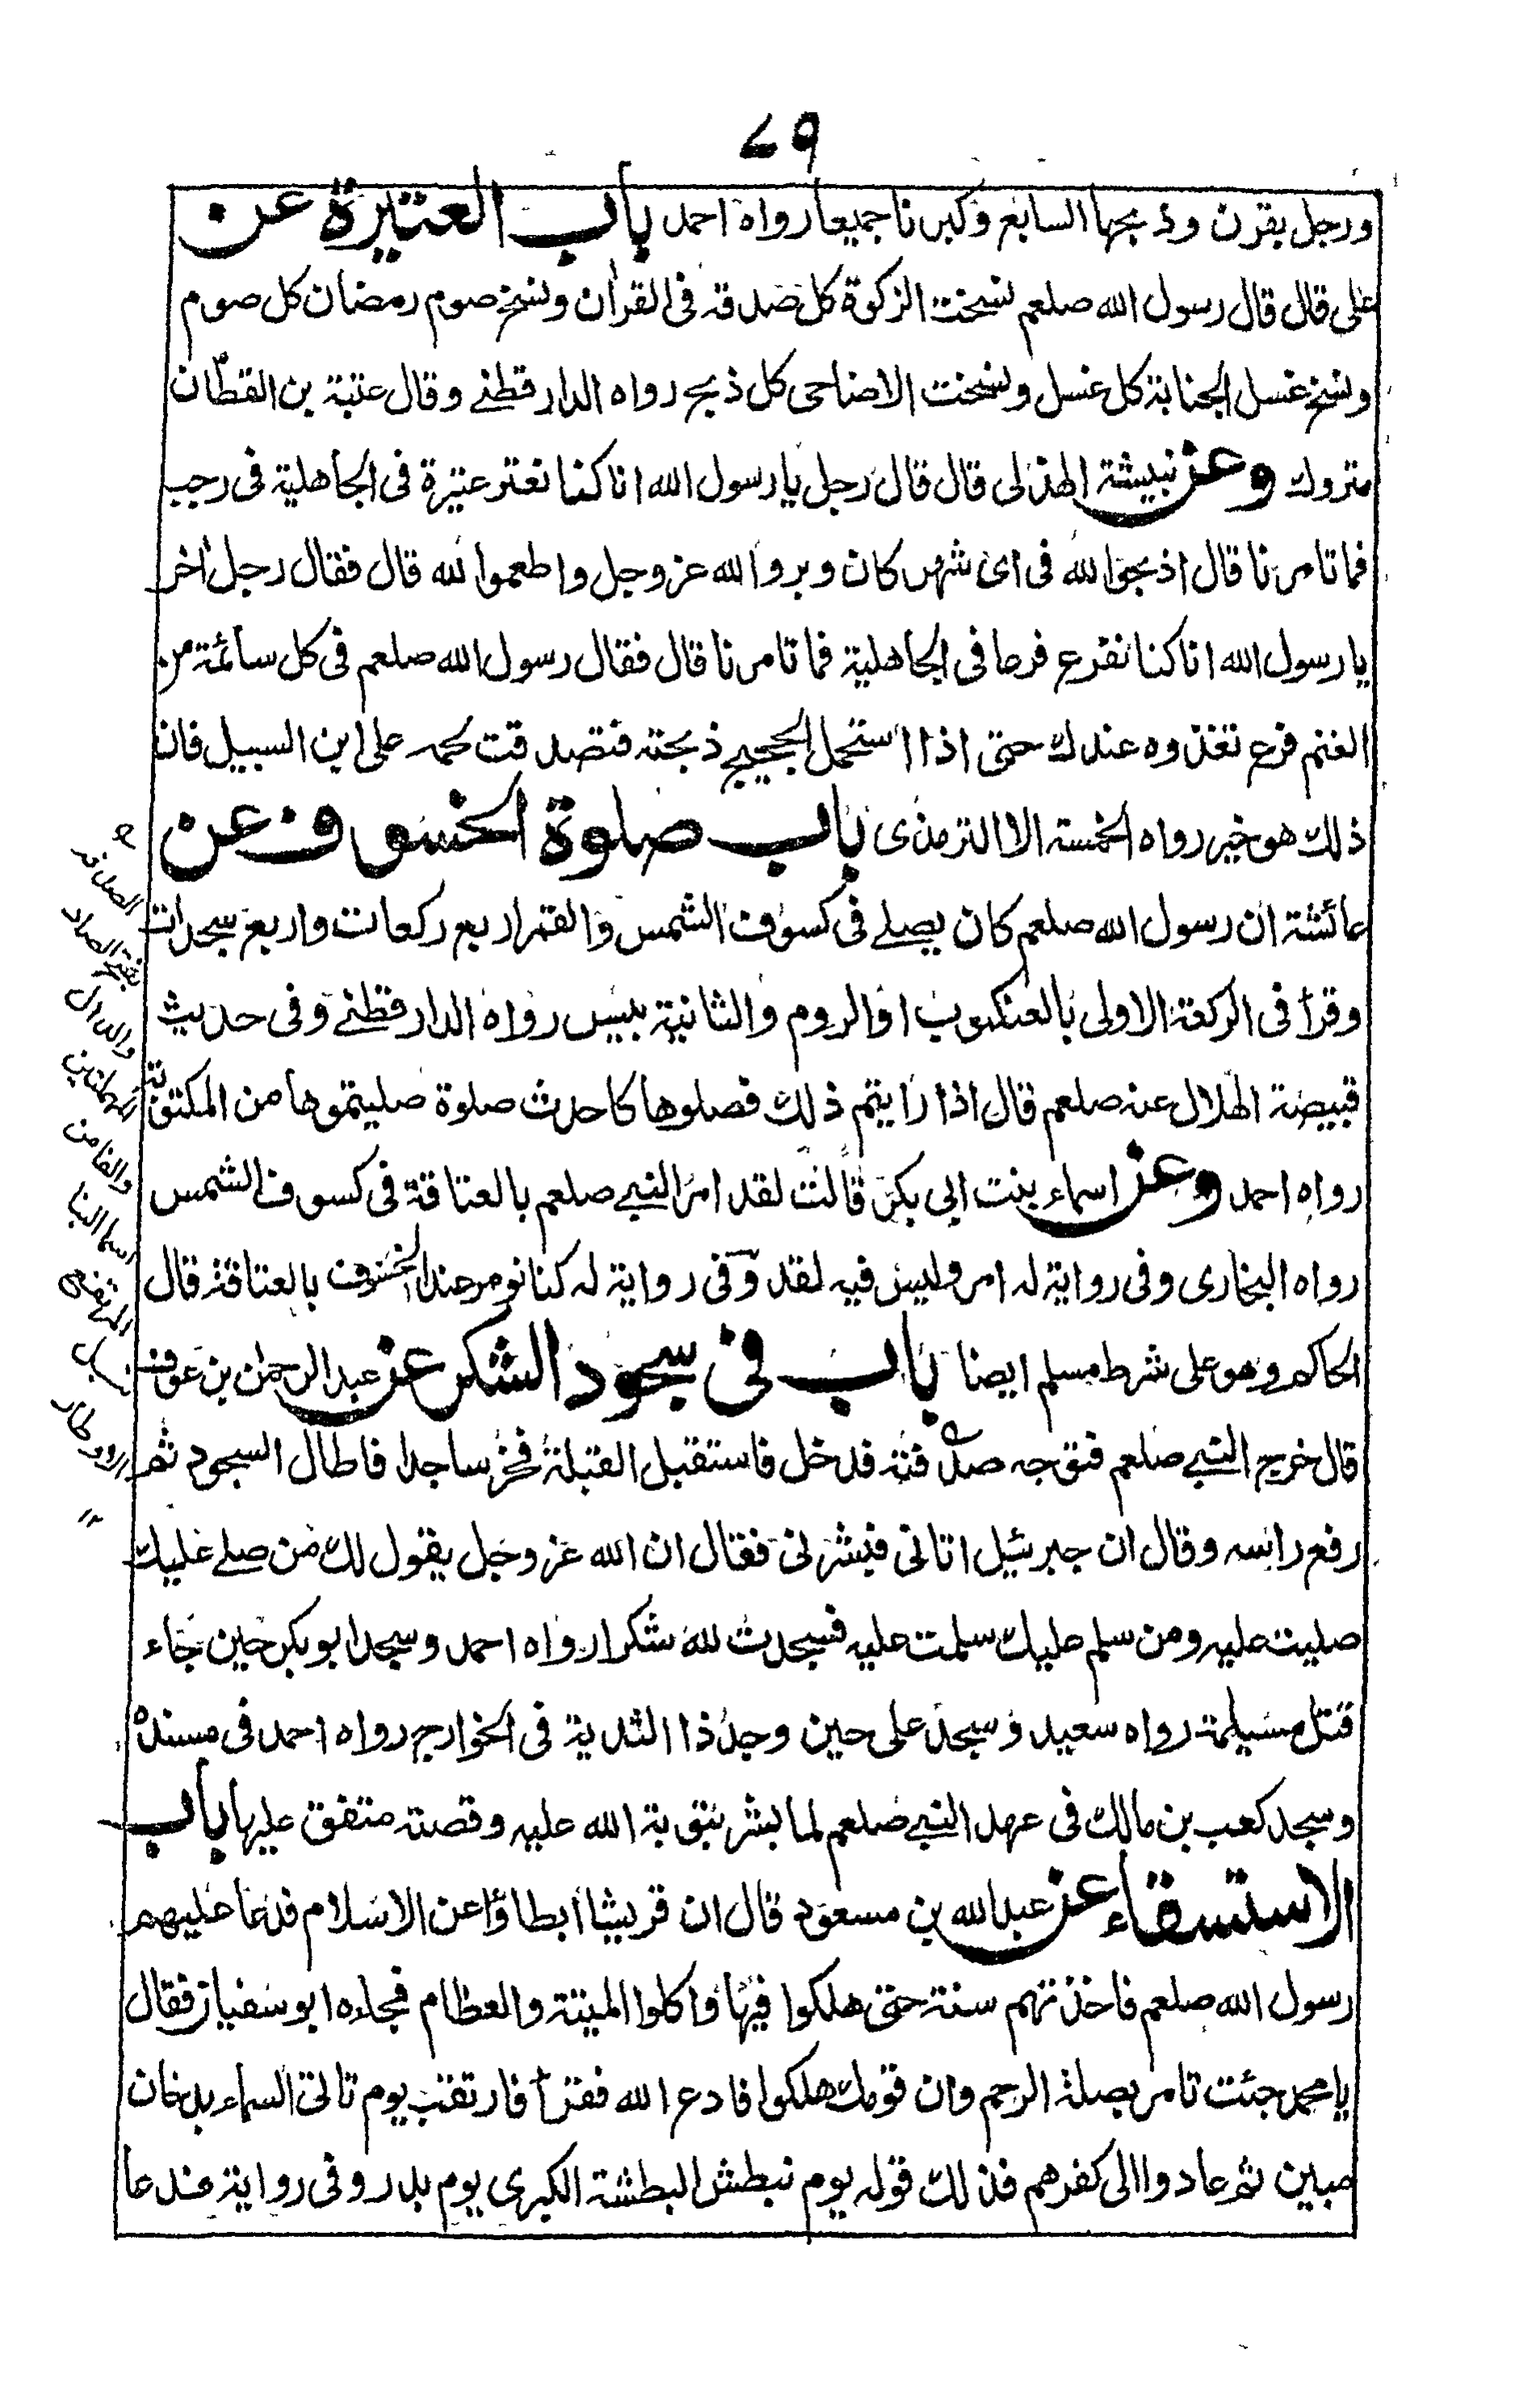 ٧٩
ورجل بقرن وذبحها السابع وكبرنا جميعا رواه احمد باب العتيرة عن
على قال قال رسول الله صلعم نسخت الزكوة كل صدقة فى القرأن ونسخ صوم رمضان كل صوم
ونسخ غسل الجنابة كل غسل ونسخت الاضاحى كل ذبح رواه الدارقطنے وقال عتبة بن القطّان
متروك وعن نبيشة الهذلى قال قال رجل يا رسول الله انا كنا نعتر عتيرة فى الجاهلية فى رجب
فما تامرنا قال اذبحوا لله فى اى شهر كان وبروا الله عز وجل واطعموا لله قال فقال رجل أخر
يا رسول الله انا كنا نفرع فرعا فى الجاهلية فما تامرنا قال فقال رسول الله صلعم فى كل سائمة من
الغنم فرع تغذوه عندك حتى اذا استحمل للحجيج ذبحته فتصدقت لحمه على ابن السبيل فان
ذلك هو خير رواه الخمسة الا الترمذى باب صلوة الخسوف عن
عائشة ان رسول الله صلعم كان يصلے فى كسوف الشمس والقمر اربع ركعات واربع سجدات
وقرأ فى الركعة الاولى بالعنكبوت او الروم والثانية بيس رواه الدارقطنے وفى حديث
قبيصة الهلال عنه صلعم قال اذا رايتم ذلك فصلوها كاحدث صلوة صليتموها من المكتوبة
رواه احمد وعن اسماء بنت ابى بكر قالت لقد امر النبے صلعم بالعتاقة فى كسوف الشمس
رواه البخارى وفى رواية له امر وليس فيه لقد وفى رواية له كنا نومر عند الخسوف بالعتاقة قال
الحاكم وهو على شرط مسلم ايضا باب فى سجود الشكر عن عبد الرحمن بن عوف
قال خرج النبے صلعم فتوجه صدفته فدخل فاستقبل القبلة فخر ساجدا فاطال السجود ثم
رفع راسه وقال ان جبرئيل اتانى فبشرنى فقال ان الله عز وجل يقول لك من صلے عليك
صليت عليه ومن سلم عليك سلمت عليه فسجدت لله شكرا رواه احمد وسجد ابو بكر حين جاء
قتل مسيلمة رواه سعيد وسجد على حين وجد ذا الثدية فى الخوارج رواه احمد فى مسنده
وسجد كعب بن مالك فى عهد النبے صلعم لما بشر بتوبة الله عليه وقصته متفق عليها باب
الاستسقاء عن عبد الله بن مسعود قال ان قريشا أبطاؤا عن الاسلام فدعا عليهم
رسول الله صلعم فاخذتهم سنة حتى هلكوا فيها واكلوا الميتة والعظام فجاءه ابو سفيان فقال
يا محمد جئت تامر بصلة الرحم وان قومك هلكوا فادع الله فقرأ فارتقب يوم تاتى السماء بدخان
مبين ثم عادوا الى كفرهم فذلك قوله يوم نبطش البطشة الكبرى يوم بدر وفى رواية فدعا
بفتح الصاد
والدال
المهملتين
والفا من
اسما البنا
المرتفع